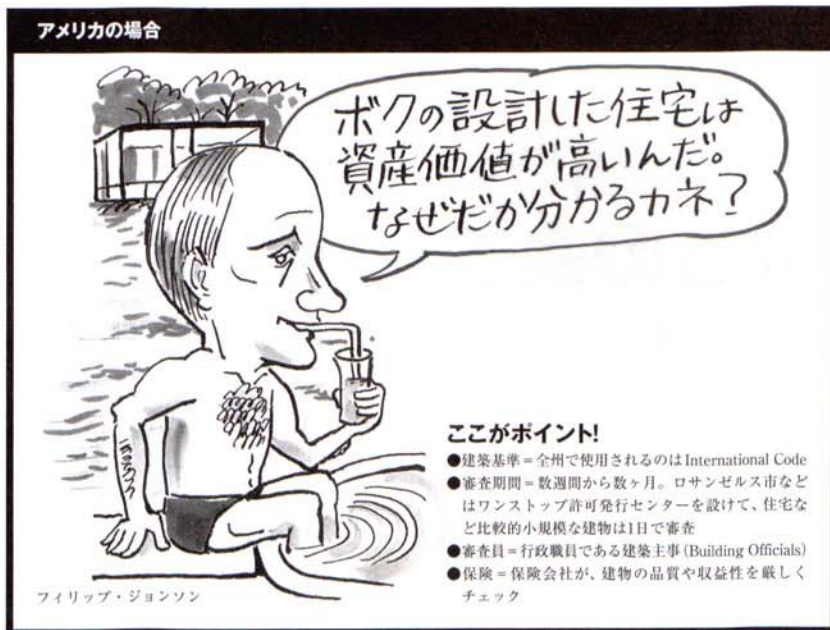 アメリカの場合
ボクの設計した住宅は
資産価値が高いんだ。
なぜだか分かるカネ?
ここがポイント!
●建築基準=全州で使用されるのはInternational Code
●審査期間=数週間から数ヶ月。ロサンゼルス市など
はワンストップ許可発行センターを設けて、住宅な
ど比較的小規模な建物は1日で審査
●審査員=行政職員である建築主事(Building Officials)
●保険=保険会社が、建物の品質や収益性を厳しく
チェック
フィリップ・ジョンソン